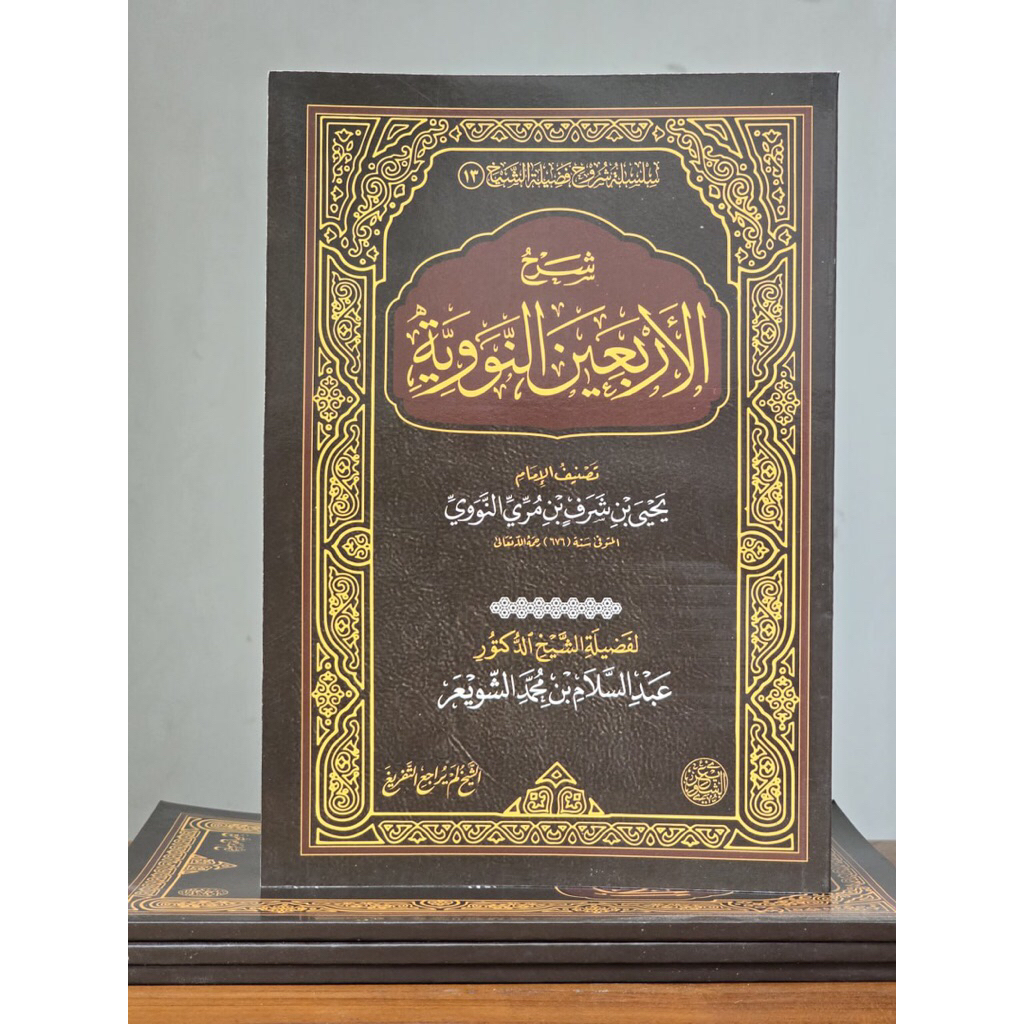 سلسلة شروح فضيلة الشيخ ١٣
شَرْحُ
الأَرْبَعِينَ النَّوَوِيَّةِ
تَصْنِيفُ الإِمَامِ
يَحْيَى بْنِ شَرَفٍ بْنِ مُرِّيٍّ النَّوَوِيِّ
المتوفى سنة (٦٧٦) رحمه الله تعالى
لفَضِيلَةِ الشَّيْخِ الدُّكتُورِ
عَبْدِ السَّلَامِ بْنِ مُحَمَّدٍ الشّويْعَر
الشيخ لم يراجع التفريغ